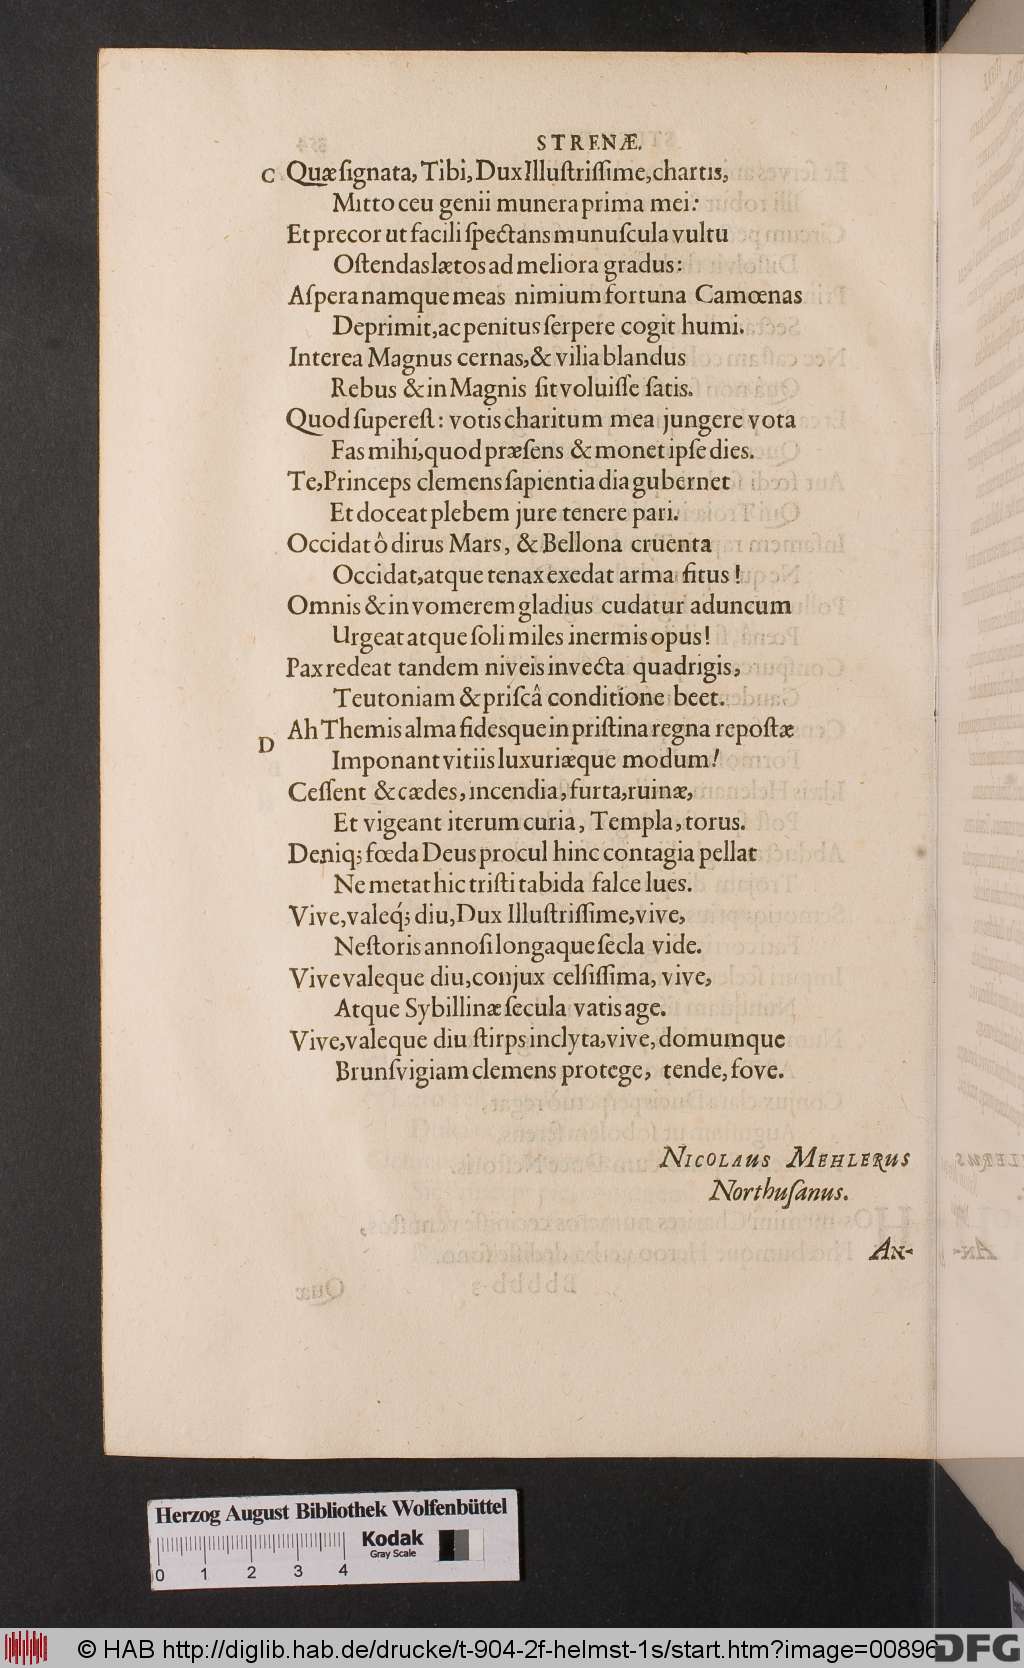 STRENÆ.
C Quæ ſignata, Tibi, Dux Illuſtriſſime, chartis,
Mitto ceu genii munera prima mei:
Et precor ut facili ſpectans munuſcula vultu
Oſtendas lætos ad meliora gradus:
Aſpera namque meas nimium fortuna Camœnas
Deprimit, ac penitus ſerpere cogit humi.
Interea Magnus cernas, & vilia blandus
Rebus & in Magnis ſit voluiſſe ſatis.
Quod ſupereſt: votis charitum mea jungere vota
Fas mihi, quod præſens & monet ipſe dies.
Te, Princeps clemens ſapientia dia gubernet
Et doceat plebem jure tenere pari.
Occidat ô dirus Mars, & Bellona cruenta
Occidat, atque tenax exedat arma ſitus!
Omnis & in vomerem gladius cudatur aduncum
Urgeat atque ſoli miles inermis opus!
Pax redeat tandem niveis invecta quadrigis,
Teutoniam & priſcâ conditione beet.
D Ah Themis alma fidesque in priſtina regna repoſtæ
Imponant vitiis luxuriæque modum!
Ceſſent & cædes, incendia, furta, ruinæ,
Et vigeant iterum curia, Templa, torus.
Deniq; fœda Deus procul hinc contagia pellat
Ne metat hic triſti tabida falce lues.
Vive, valeq́; diu, Dux Illuſtriſſime, vive,
Neſtoris annoſi longaque ſecla vide.
Vive valeque diu, conjux celſiſſima, vive,
Atque Sybillinæ ſecula vatis age.
Vive, valeque diu ſtirps inclyta, vive, domumque
Brunſvigiam clemens protege, tende, fove.
NICOLAUS MEHLERUS
Northuſanus.
AN-
Herzog August Bibliothek Wolfenbüttel
Kodak
Gray Scale
0 1 2 3 4
© HAB http://diglib.hab.de/drucke/t-904-2f-helmst-1s/start.htm?image=00896
DFG